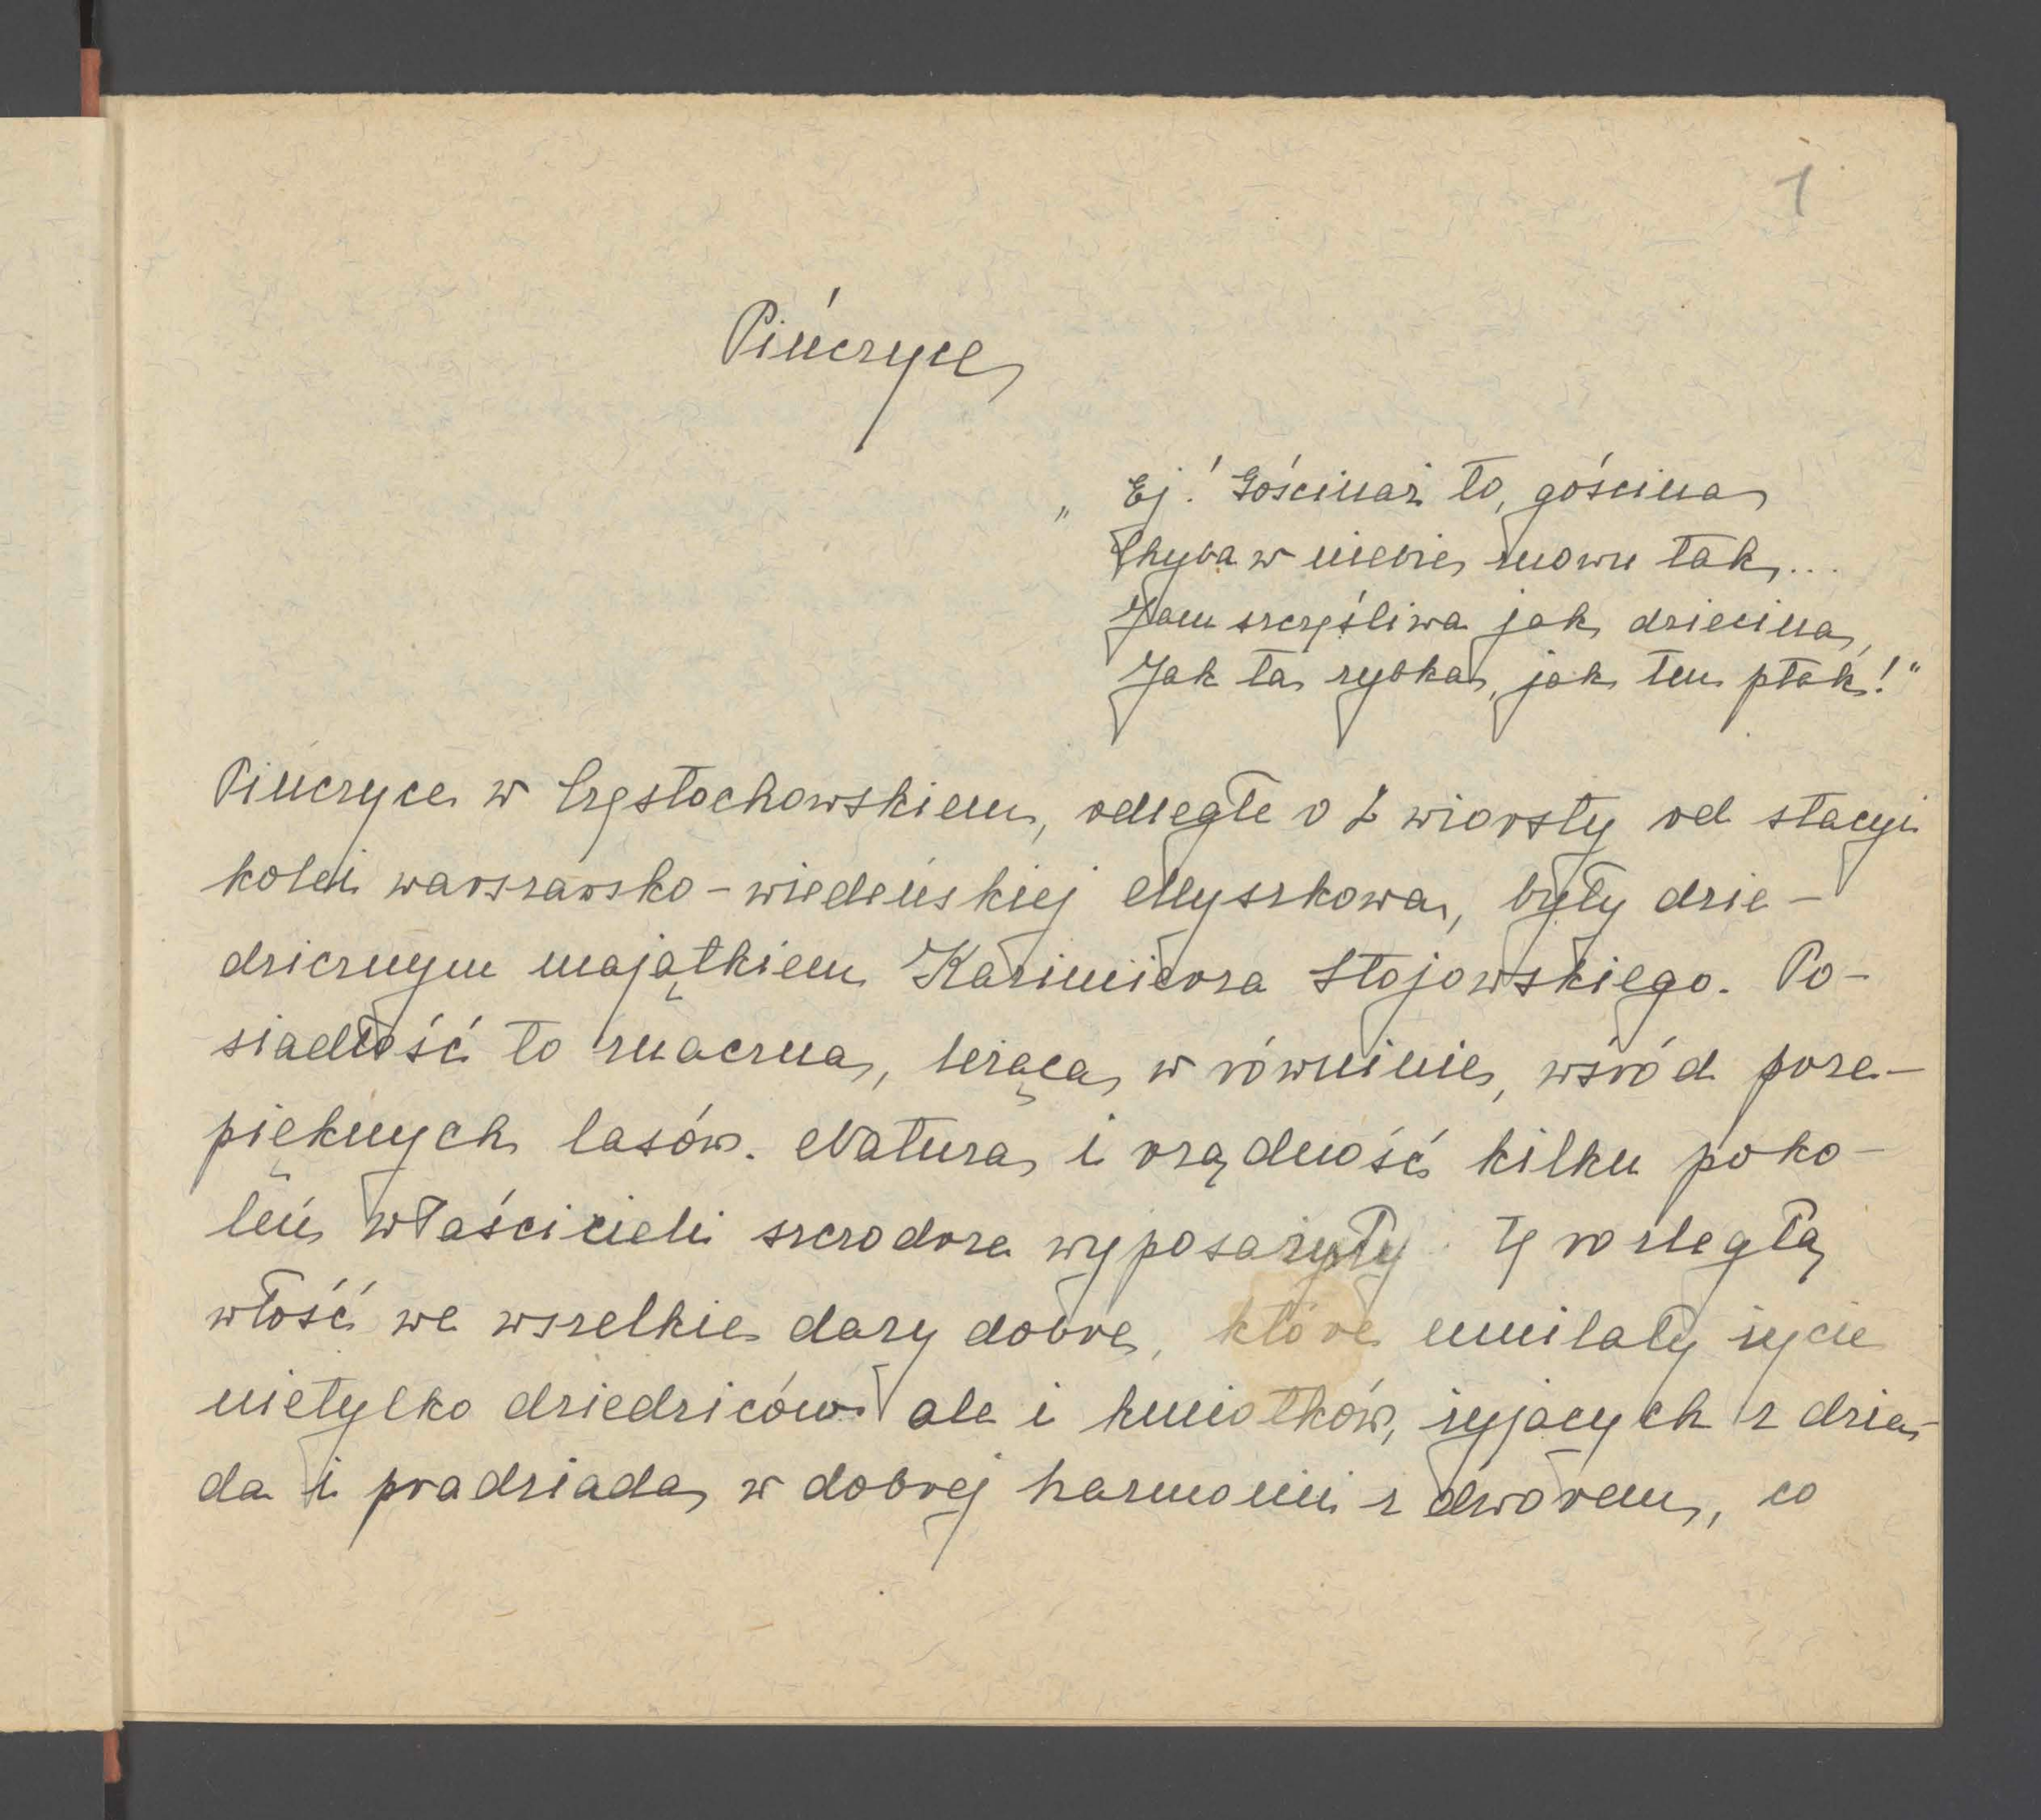 1
Pińczyce
„Ej! Gościnaż to, gościna
Chyba w niebie znowu tak...
Jam szczęśliwa jak dziecina,
Jak ta rybka, jak ten ptak!"
Pińczyce w Częstochowskiem, odległe o 2 wiorsty od stacyi
kolei warszawsko-wiedeńskiej Myszkowa, były dzie-
dzicznym majątkiem Kazimierza Stojowskiego. Po-
siadłość to znaczna, leżąca w równinie, wśród prze-
pięknych lasów. Natura i rządność kilku poko-
leń właścicieli szczodrze wyposażyły tę rozległą
włość we wszelkie dary dobre, które umilały życie
nietylko dziedziców ale i kmiotków, żyjących z dzia-
da i pradziada w dobrej harmonii z dworem, co